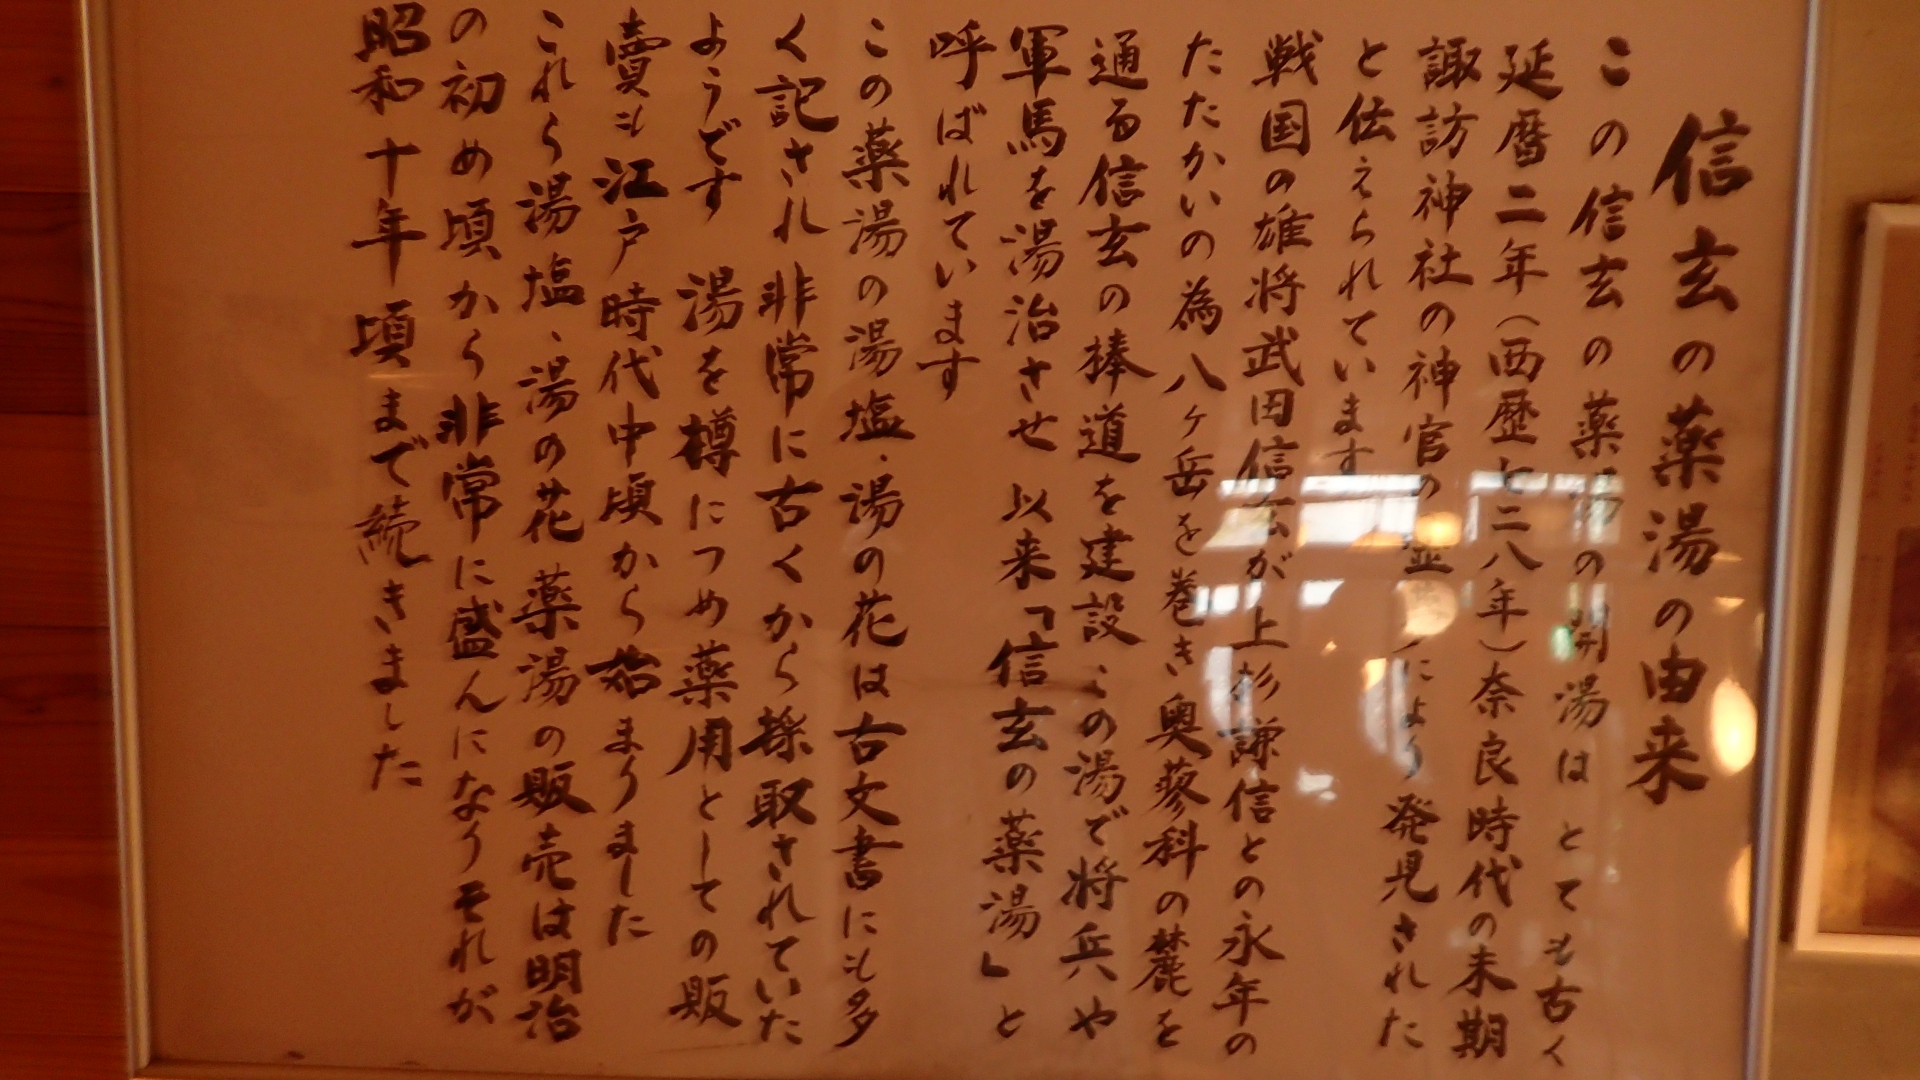 信玄の薬湯の由来
この信玄の薬湯の開湯はとても古く
延暦二年(西歴七二八年)奈良時代の末期
諏訪神社の神官の霊により発見された
と伝えられています
戦国の雄将武田信玄が上杉謙信との永年の
たたかいの為八ヶ岳を巻き奥蓼科の麓を
通る信玄の棒道を建設この湯で将兵や
軍馬を湯治させ 以来「信玄の薬湯」と
呼ばれています
この薬湯の湯塩、湯の花は古文書にも多
く記され非常に古くから採取されていた
ようです 湯を樽につめ薬用としての販
賣も江戸時代中頃から始まりました
これら湯塩、湯の花薬湯の販売は明治
の初め頃から非常に盛んになりそれが
昭和十年頃まで続きました